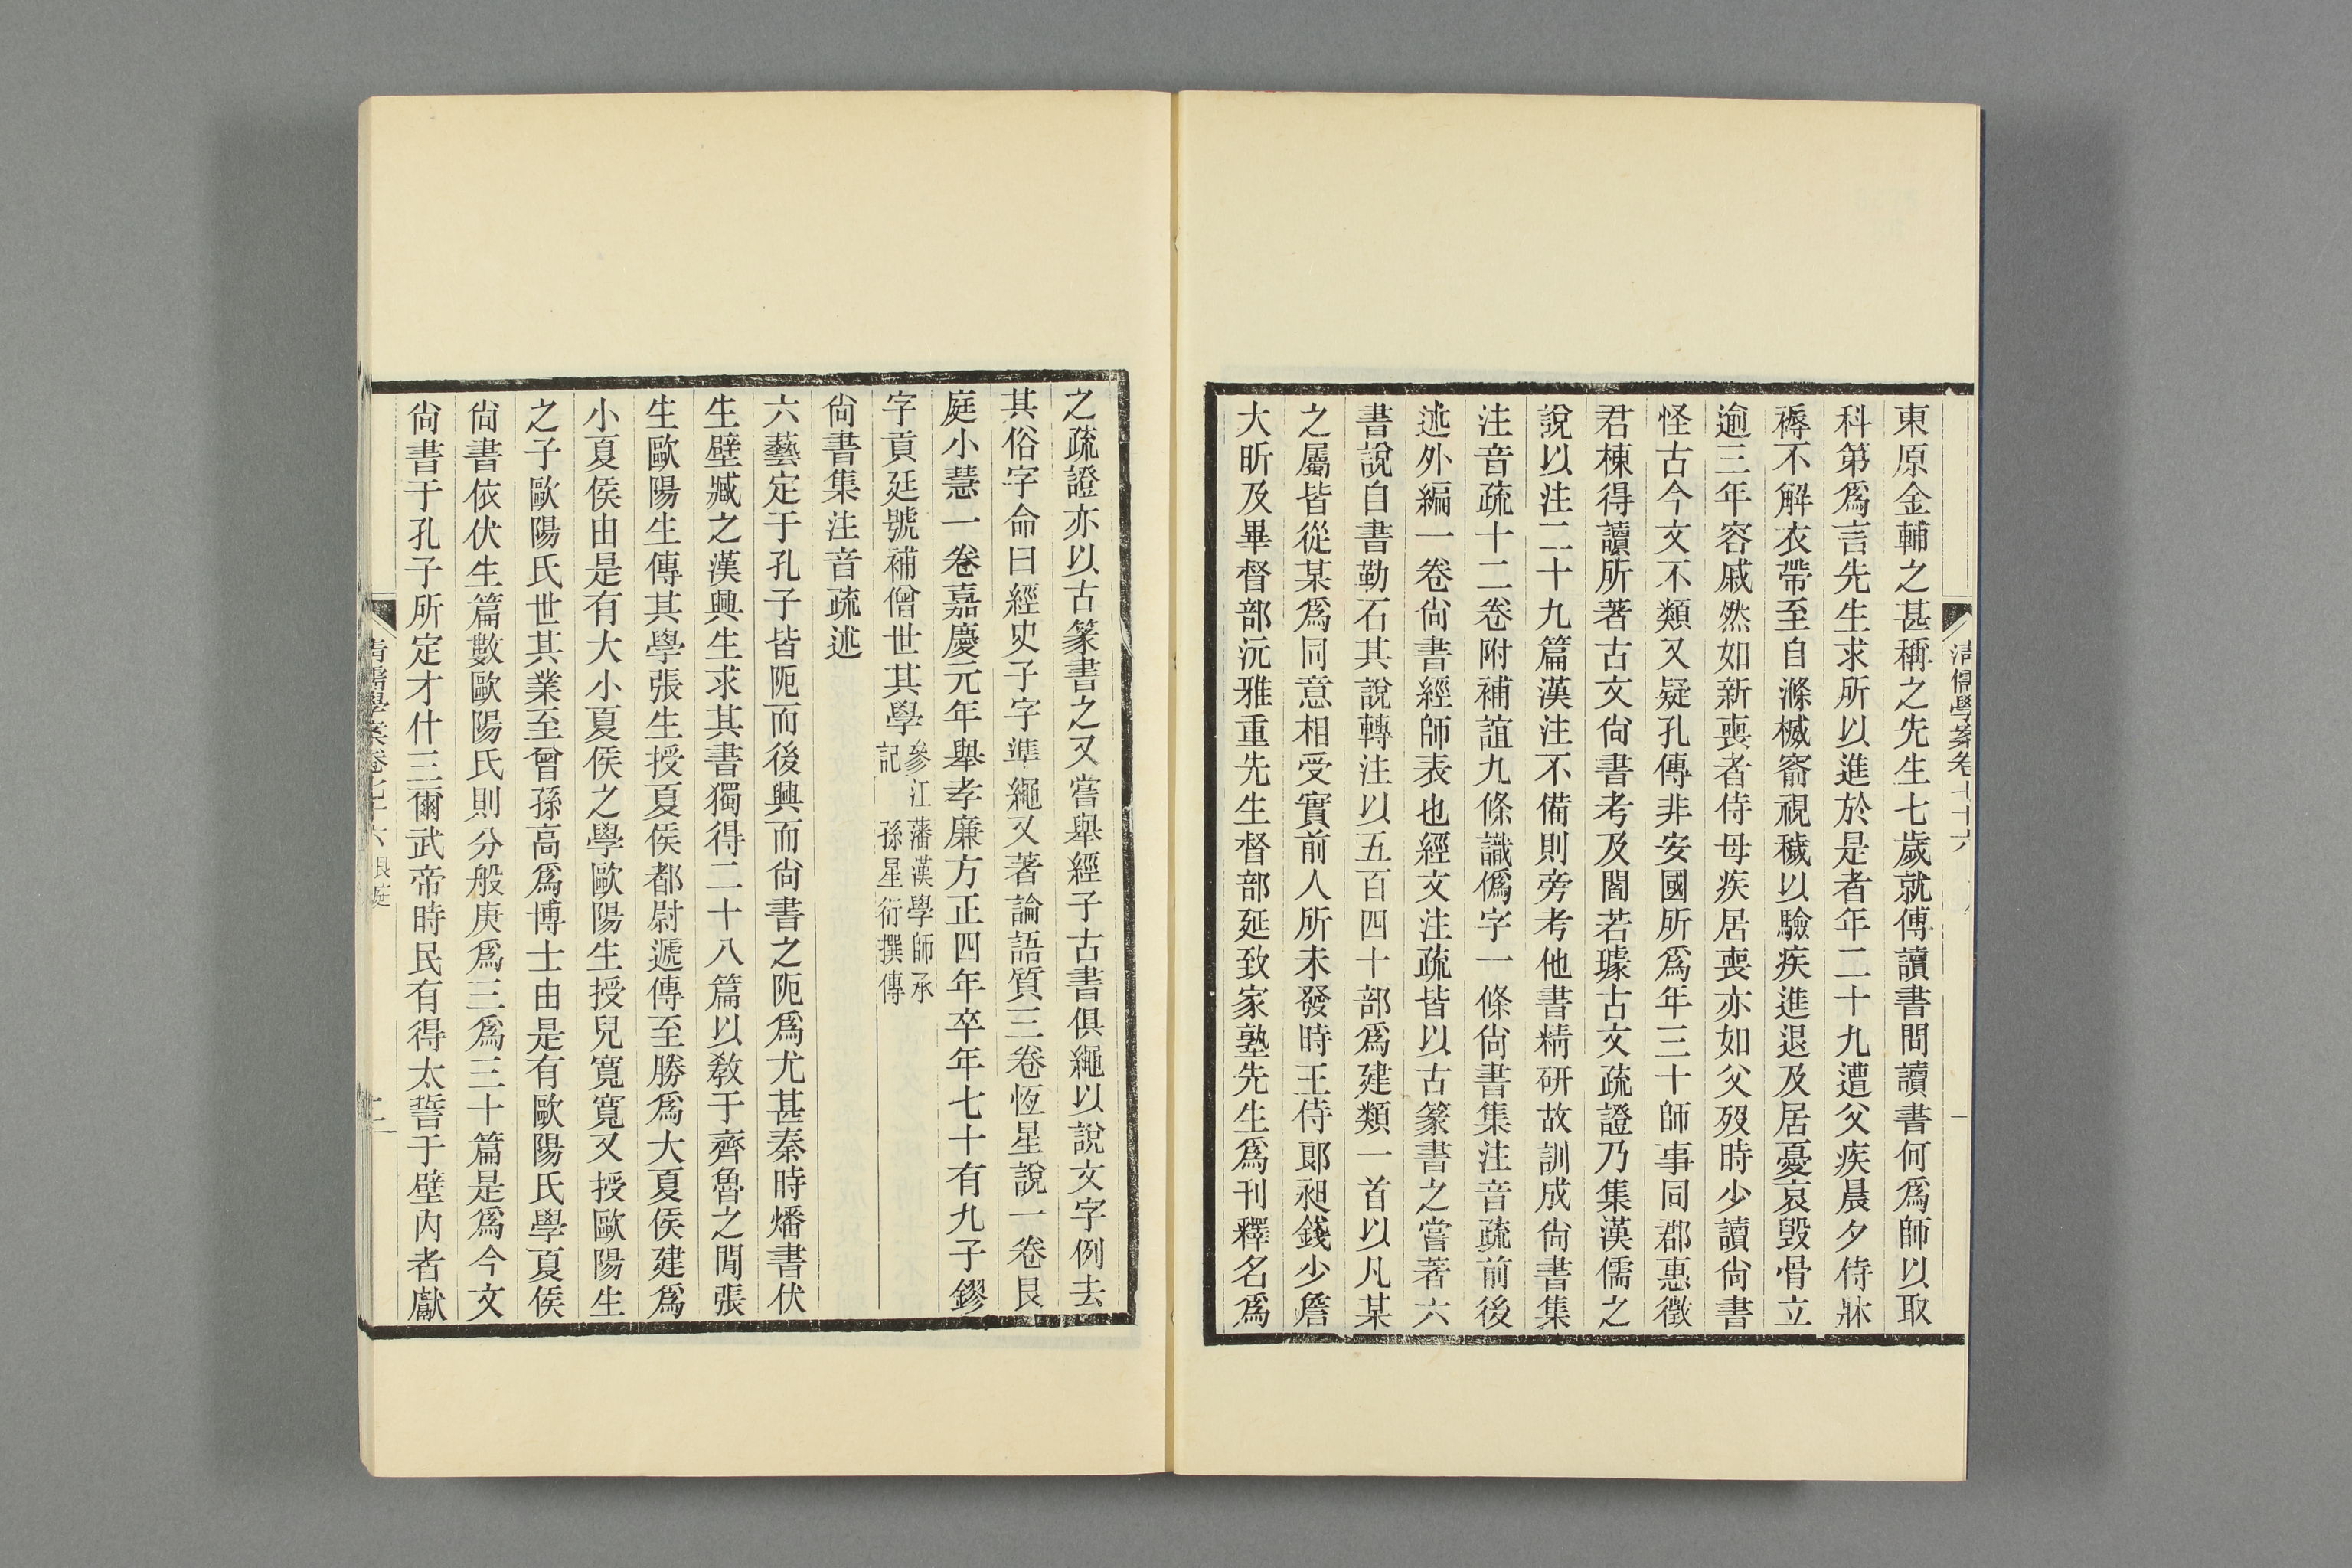 清儒學案卷七十六
一
東原金輔之甚稱之先生七歲就傅讀書問讀書何爲師以取
科第爲言先生求所以進於是者年二十九遭父疾晨夕侍牀
褥不解衣帶至自滌槭窬視穢以驗疾進退及居憂哀毀骨立
逾三年容戚然如新喪者侍母疾居喪亦如父歿時少讀尙書
怪古今文不類又疑孔傳非安國所爲年三十師事同郡惠徵
君棟得讀所著古文尙書考及閻若璩古文疏證乃集漢儒之
說以注二十九篇漢注不備則旁考他書精研故訓成尙書集
注音疏十二卷附補誼九條識僞字一條尙書集注音疏前後
述外編一卷尙書經師表也經文注疏皆以古篆書之嘗著六
書說自書勒石其說轉注以五百四十部爲建類一首以凡某
之屬皆從某爲同意相受實前人所未發時王侍郎昶錢少詹
大昕及畢督部沅雅重先生督部延致家塾先生爲刊釋名爲
之疏證亦以古篆書之又嘗舉經子古書俱繩以說文字例去
其俗字命曰經史子字準繩又著論語質三卷恆星說一卷艮
庭小慧一卷嘉慶元年舉孝廉方正四年卒年七十有九子鏐
字貢廷號補僧世其學參江藩漢學師承
記 孫星衍撰傳
尙書集注音疏述
六藝定于孔子皆阨而後興而尙書之阨爲尤甚秦時燔書伏
生壁臧之漢興生求其書獨得二十八篇以敎于齊魯之閒張
生歐陽生傳其學張生授夏侯都尉遞傳至勝爲大夏侯建爲
小夏侯由是有大小夏侯之學歐陽生授兒寬寬又授歐陽生
之子歐陽氏世其業至曾孫高爲博士由是有歐陽氏學夏侯
尙書依伏生篇數歐陽氏則分般庚爲三爲三十篇是爲今文
尙書于孔子所定才什三爾武帝時民有得太誓于壁內者獻
清儒學案卷七十六 艮庭
二